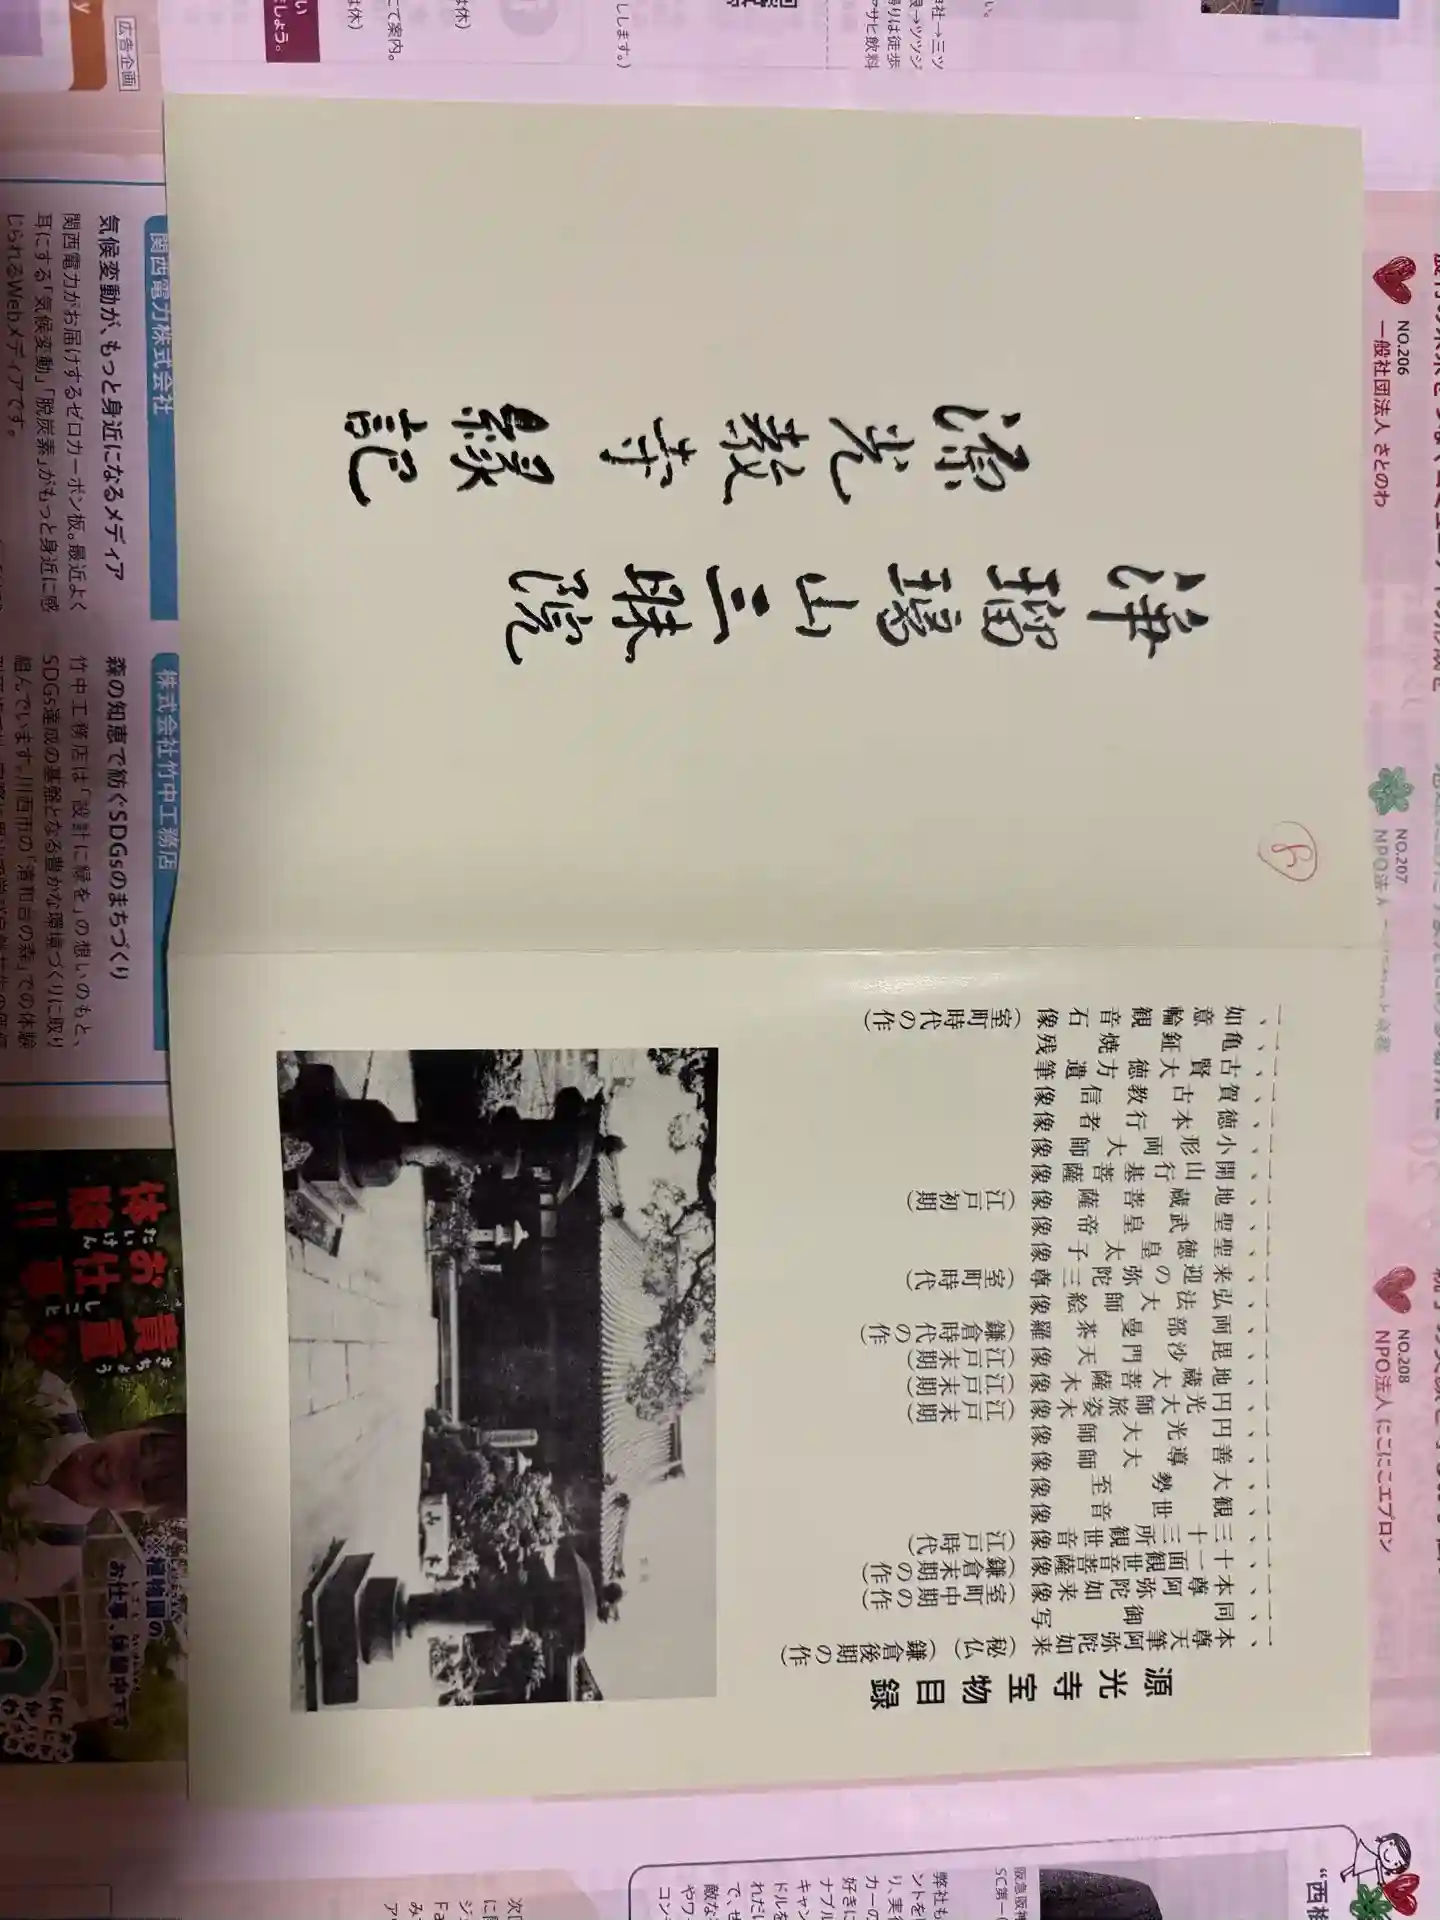 浄瑠璃山三昧院
源光教寺縁記
源光寺宝物目録
一、本尊天筆阿弥陀如来(秘仏)(鎌倉後期の作)
一、同御写
一、本尊阿弥陀如来像(室町中期の作)
一、十一面観世音菩薩像(鎌倉末期の作)
一、三十三所観世音像(江戸時代)
一、観世音像
一、大勢至像
一、善導大師像
一、円光大師像
一、円光大師旅姿木像(江戸末期)
一、地蔵大菩薩木像(江戸末期)
一、毘沙門天像(江戸末期)
一、両部曼茶羅(鎌倉時代の作)
一、弘法大師絵像
一、来迎の弥陀三尊(室町時代)
一、聖徳皇太子像
一、聖武皇帝像
一、地蔵菩薩像(江戸初期)
一、開山行基菩薩像
一、小形両大師像
一、徳本行者像
一、賀古教信像
一、古賢大徳方遺筆
一、亀鉦焼残
一、如意輪観音石像(室町時代の作)
広告企画
関西電力株式会社
気候変動が、もっと身近になるメディア
関西電力がお届けするゼロカーボン板。最近よく
耳にする「気候変動」「脱炭素」がもっと身近に感
じられるWebメディアです。
株式会社竹中工務店
森の知恵で紡ぐSDGsのまちづくり
竹中工務店は「設計に緑を」の想いのもと、
SDGs達成の基盤となる豊かな環境づくりに取り
組んでいます。川西市の「清和台の森」での体験
NO.206
一般社団法人 さとのわ
NO.207
NPO法人
NO.208
NPO法人 にこにこエプロン
貴重な
お仕事
体験!!
きちょう
しごと
たいけん
※植物園の
お仕事、体験中です